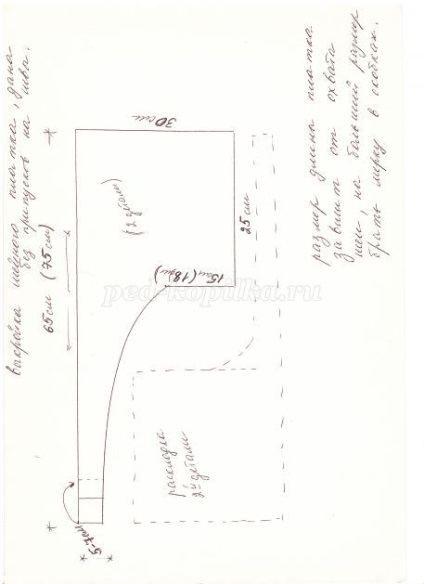 выкройка шейного платка, дана
без припусков на швы.
65 см (75 см)
30 см
(2 детали)
25 см
15 см (18 см)
5-7 см
раскладка
2ой детали
размер длина платка
зависит от охвата
шеи, на больший размер
брать мерку в скобках.
ped-kopilka.ru